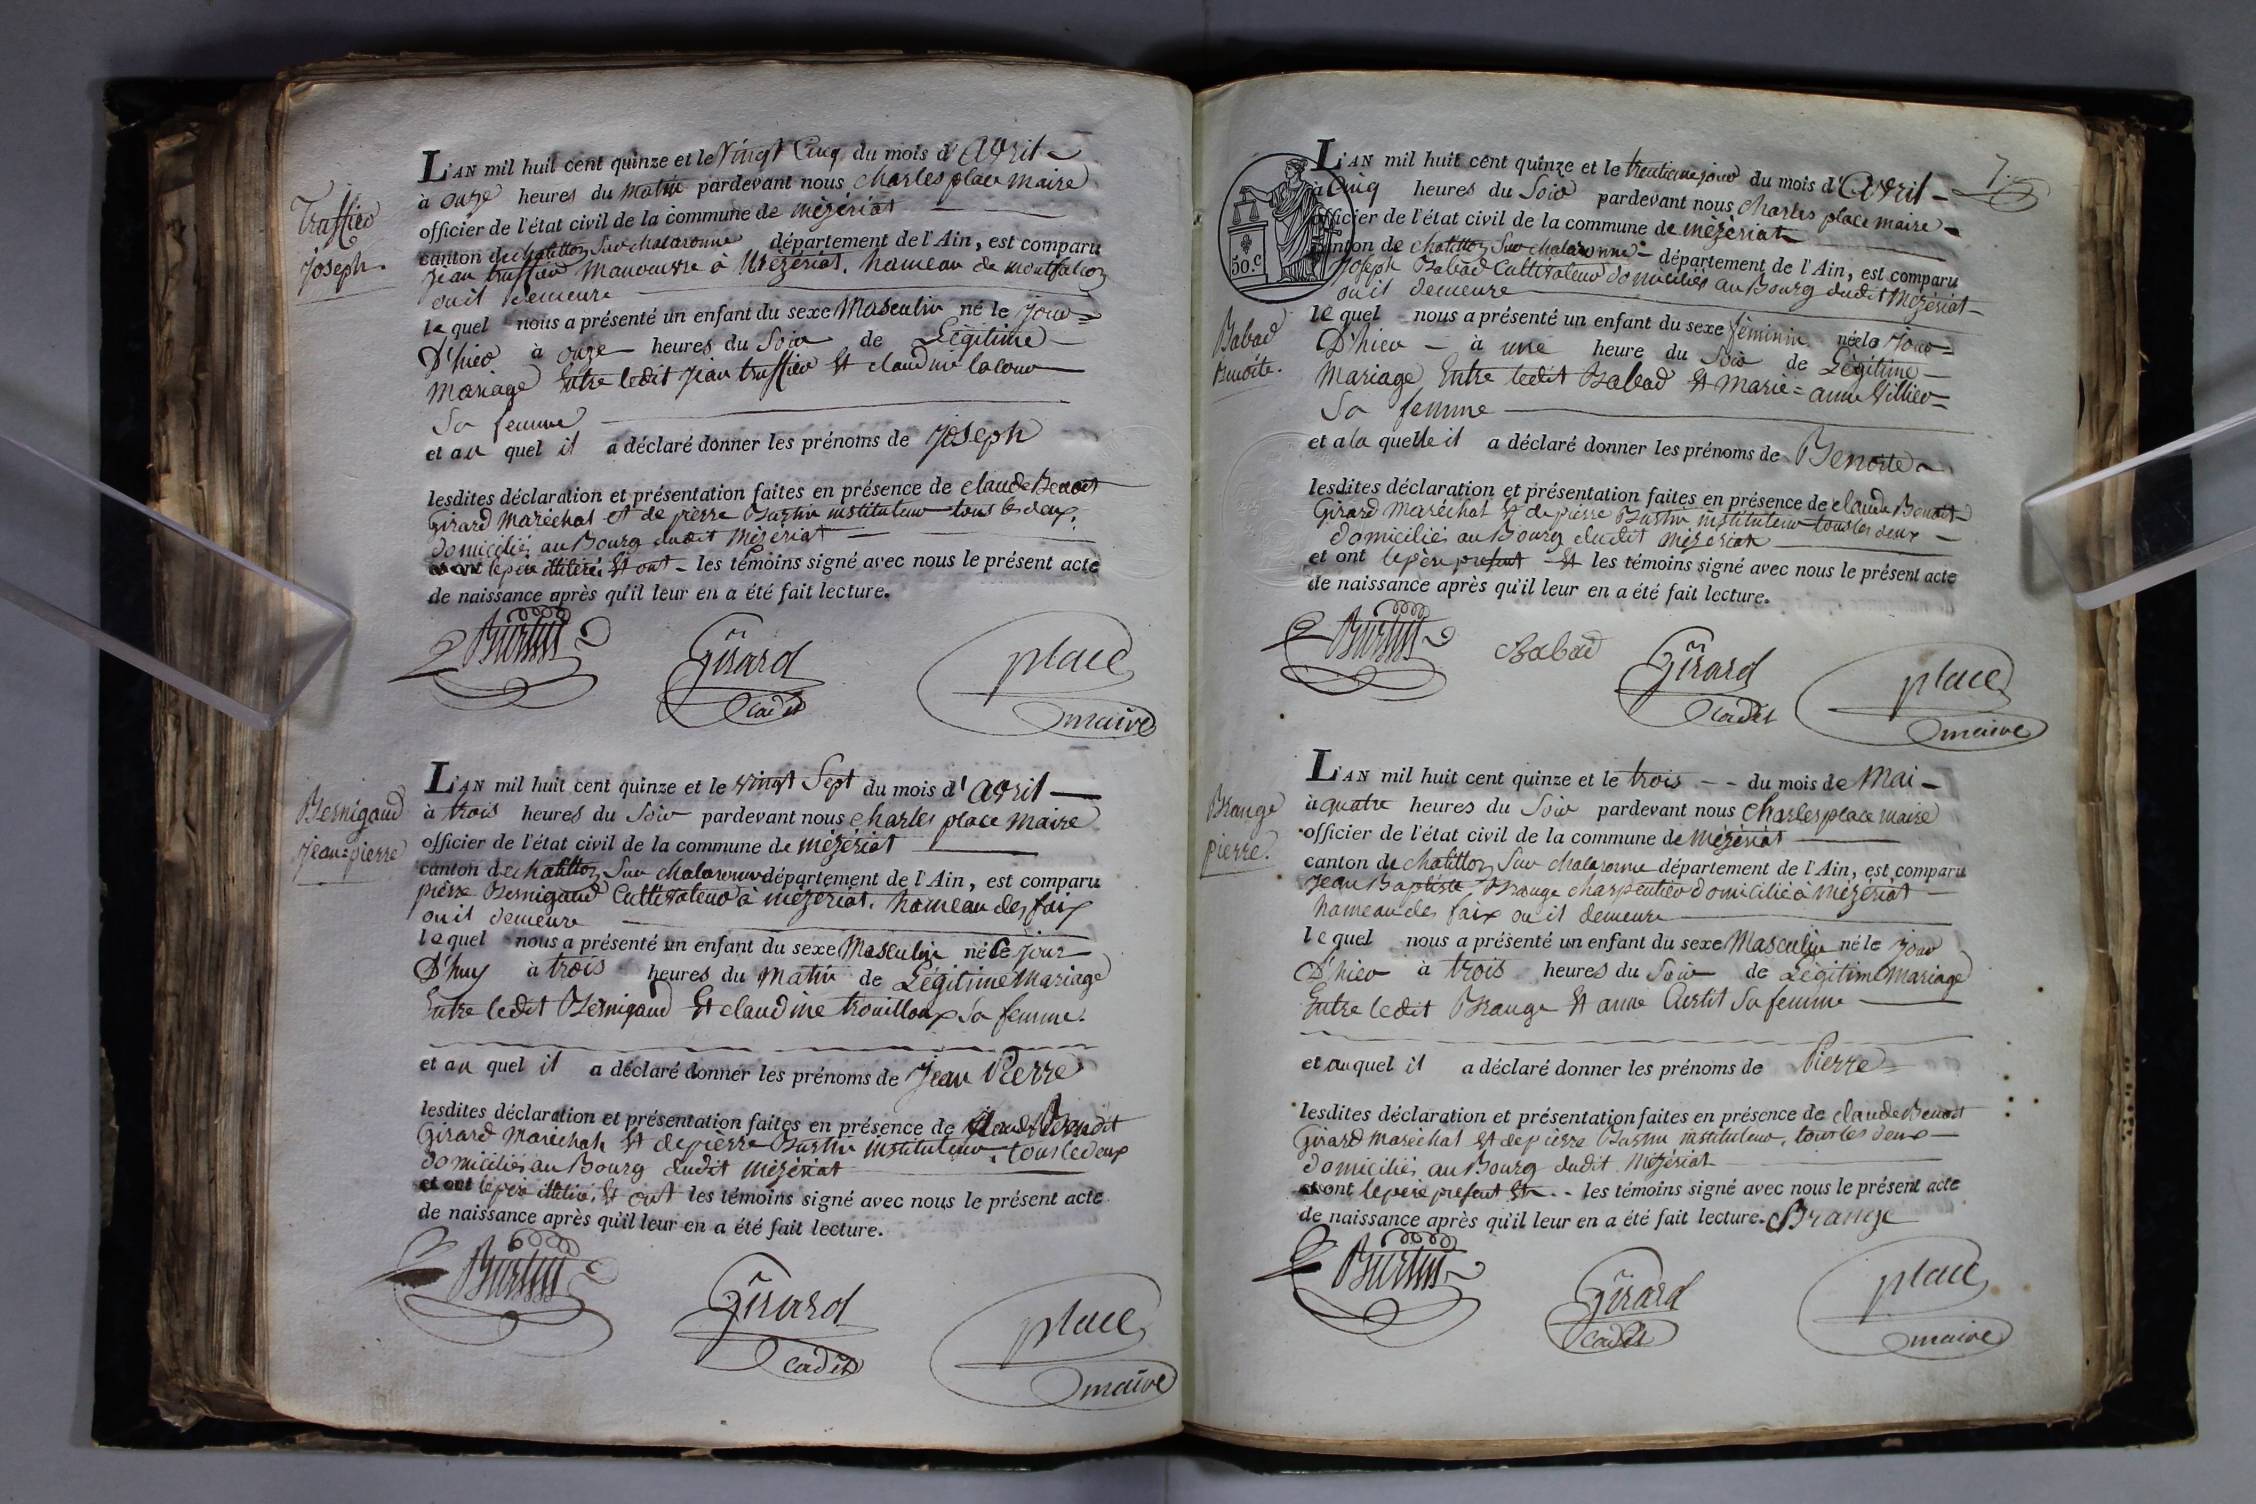 Truffier
Joseph.
L'AN mil huit cent quinze et le Vingt Cinq du mois d'Avril
à onze heures du matin pardevant nous charles place maire
officier de l'état civil de la commune de mézériat
canton de chatillon Sur chalaronne département de l'Ain, est comparu
Jean truffier manouvre à Mézériat, hameau de montfalcon
ou il demeure
lequel nous a présenté un enfant du sexe Masculin né le Jour
D'hier à onze heures du Soir de Légitime
Mariage Entre ledit Jean truffier Et claudine lacour
Sa femme
et au quel il a déclaré donner les prénoms de Joseph
lesdites déclaration et présentation faites en présence de claude Benoit
Girard Maréchal et de pierre Burtin instituteur tous les deux,
domiciliés au Bourg dudit Mézériat
le père illitéré, Et ont les témoins signé avec nous le présent acte
de naissance après qu'il leur en a été fait lecture.
Burtin Girard place
cadet maire
Bernigaud
Jean=pierre
L'AN mil huit cent quinze et le vingt Sept du mois d'Avril
à trois heures du Soir pardevant nous charles place maire
officier de l'état civil de la commune de mézériat
canton de chatillon Sur chalaronne département de l'Ain, est comparu
pierre Bernigaud Cultivateur à mézériat, hameau des faix
ou il demeure
lequel nous a présenté un enfant du sexe Masculin né Ce Jour
D'huy à trois heures du Matin de Légitime Mariage
Entre ledit Bernigaud Et claudine trouilloux Sa femme.
et au quel il a déclaré donner les prénoms de Jean Pierre
lesdites déclaration et présentation faites en présence de Claude Benoit
Girard Maréchal, Et de pierre Burtin instituteur, tous le deux
domiciliés au Bourg dudit Mézériat
et ont le père illitéré, Et ont les témoins signé avec nous le présent acte
de naissance après qu'il leur en a été fait lecture.
Burtin Girard place
cadet maire
7.
50.c
Babad
Benoite.
L'AN mil huit cent quinze et le trentieme jour du mois d'Avril
à Cinq heures du Soir pardevant nous charles place maire
officier de l'état civil de la commune de mézériat
canton de chatillon Sur chalaronne département de l'Ain, est comparu
Joseph Babad Cultivateur domiciliés au Bourg dudit Mézériat
ou il demeure
lequel nous a présenté un enfant du sexe féminin née le Jour
D'hier à une heure du Soir de Légitime
Mariage Entre ledit Babad Et Marie=anne Villier
Sa femme
et a la quelle il a déclaré donner les prénoms de Benoite
lesdites déclaration et présentation faites en présence de claude Benoit
Girard Maréchal Et de pierre Burtin instituteur tous les deux
domiciliés au Bourg dudit mézériat
et ont le père présent Et les témoins signé avec nous le présent acte
de naissance après qu'il leur en a été fait lecture.
Burtin Babad Girard place
cadet maire
Brange
pierre.
L'AN mil huit cent quinze et le trois du mois de Mai
à quatre heures du Soir pardevant nous Charles place maire
officier de l'état civil de la commune de Mézériat
canton de chatillon Sur chalaronne département de l'Ain, est comparu
Jean Baptiste Brange charpentier domicilié à Mézériat
hameau des faix ou il demeure
lequel nous a présenté un enfant du sexe Masculin né le jour
D'hier à trois heures du Soir de Légitime Mariage
Entre ledit Brange Et anne Curtit Sa femme
et au quel il a déclaré donner les prénoms de Pierre
lesdites déclaration et présentation faites en présence de claude Benoit
Girard Maréchal et de pierre Burtin instituteur, tous les deux
domiciliés au Bourg dudit Mézériat
et ont le père présent Et les témoins signé avec nous le présent acte
de naissance après qu'il leur en a été fait lecture. Brange
Burtin Girard place
cadet maire